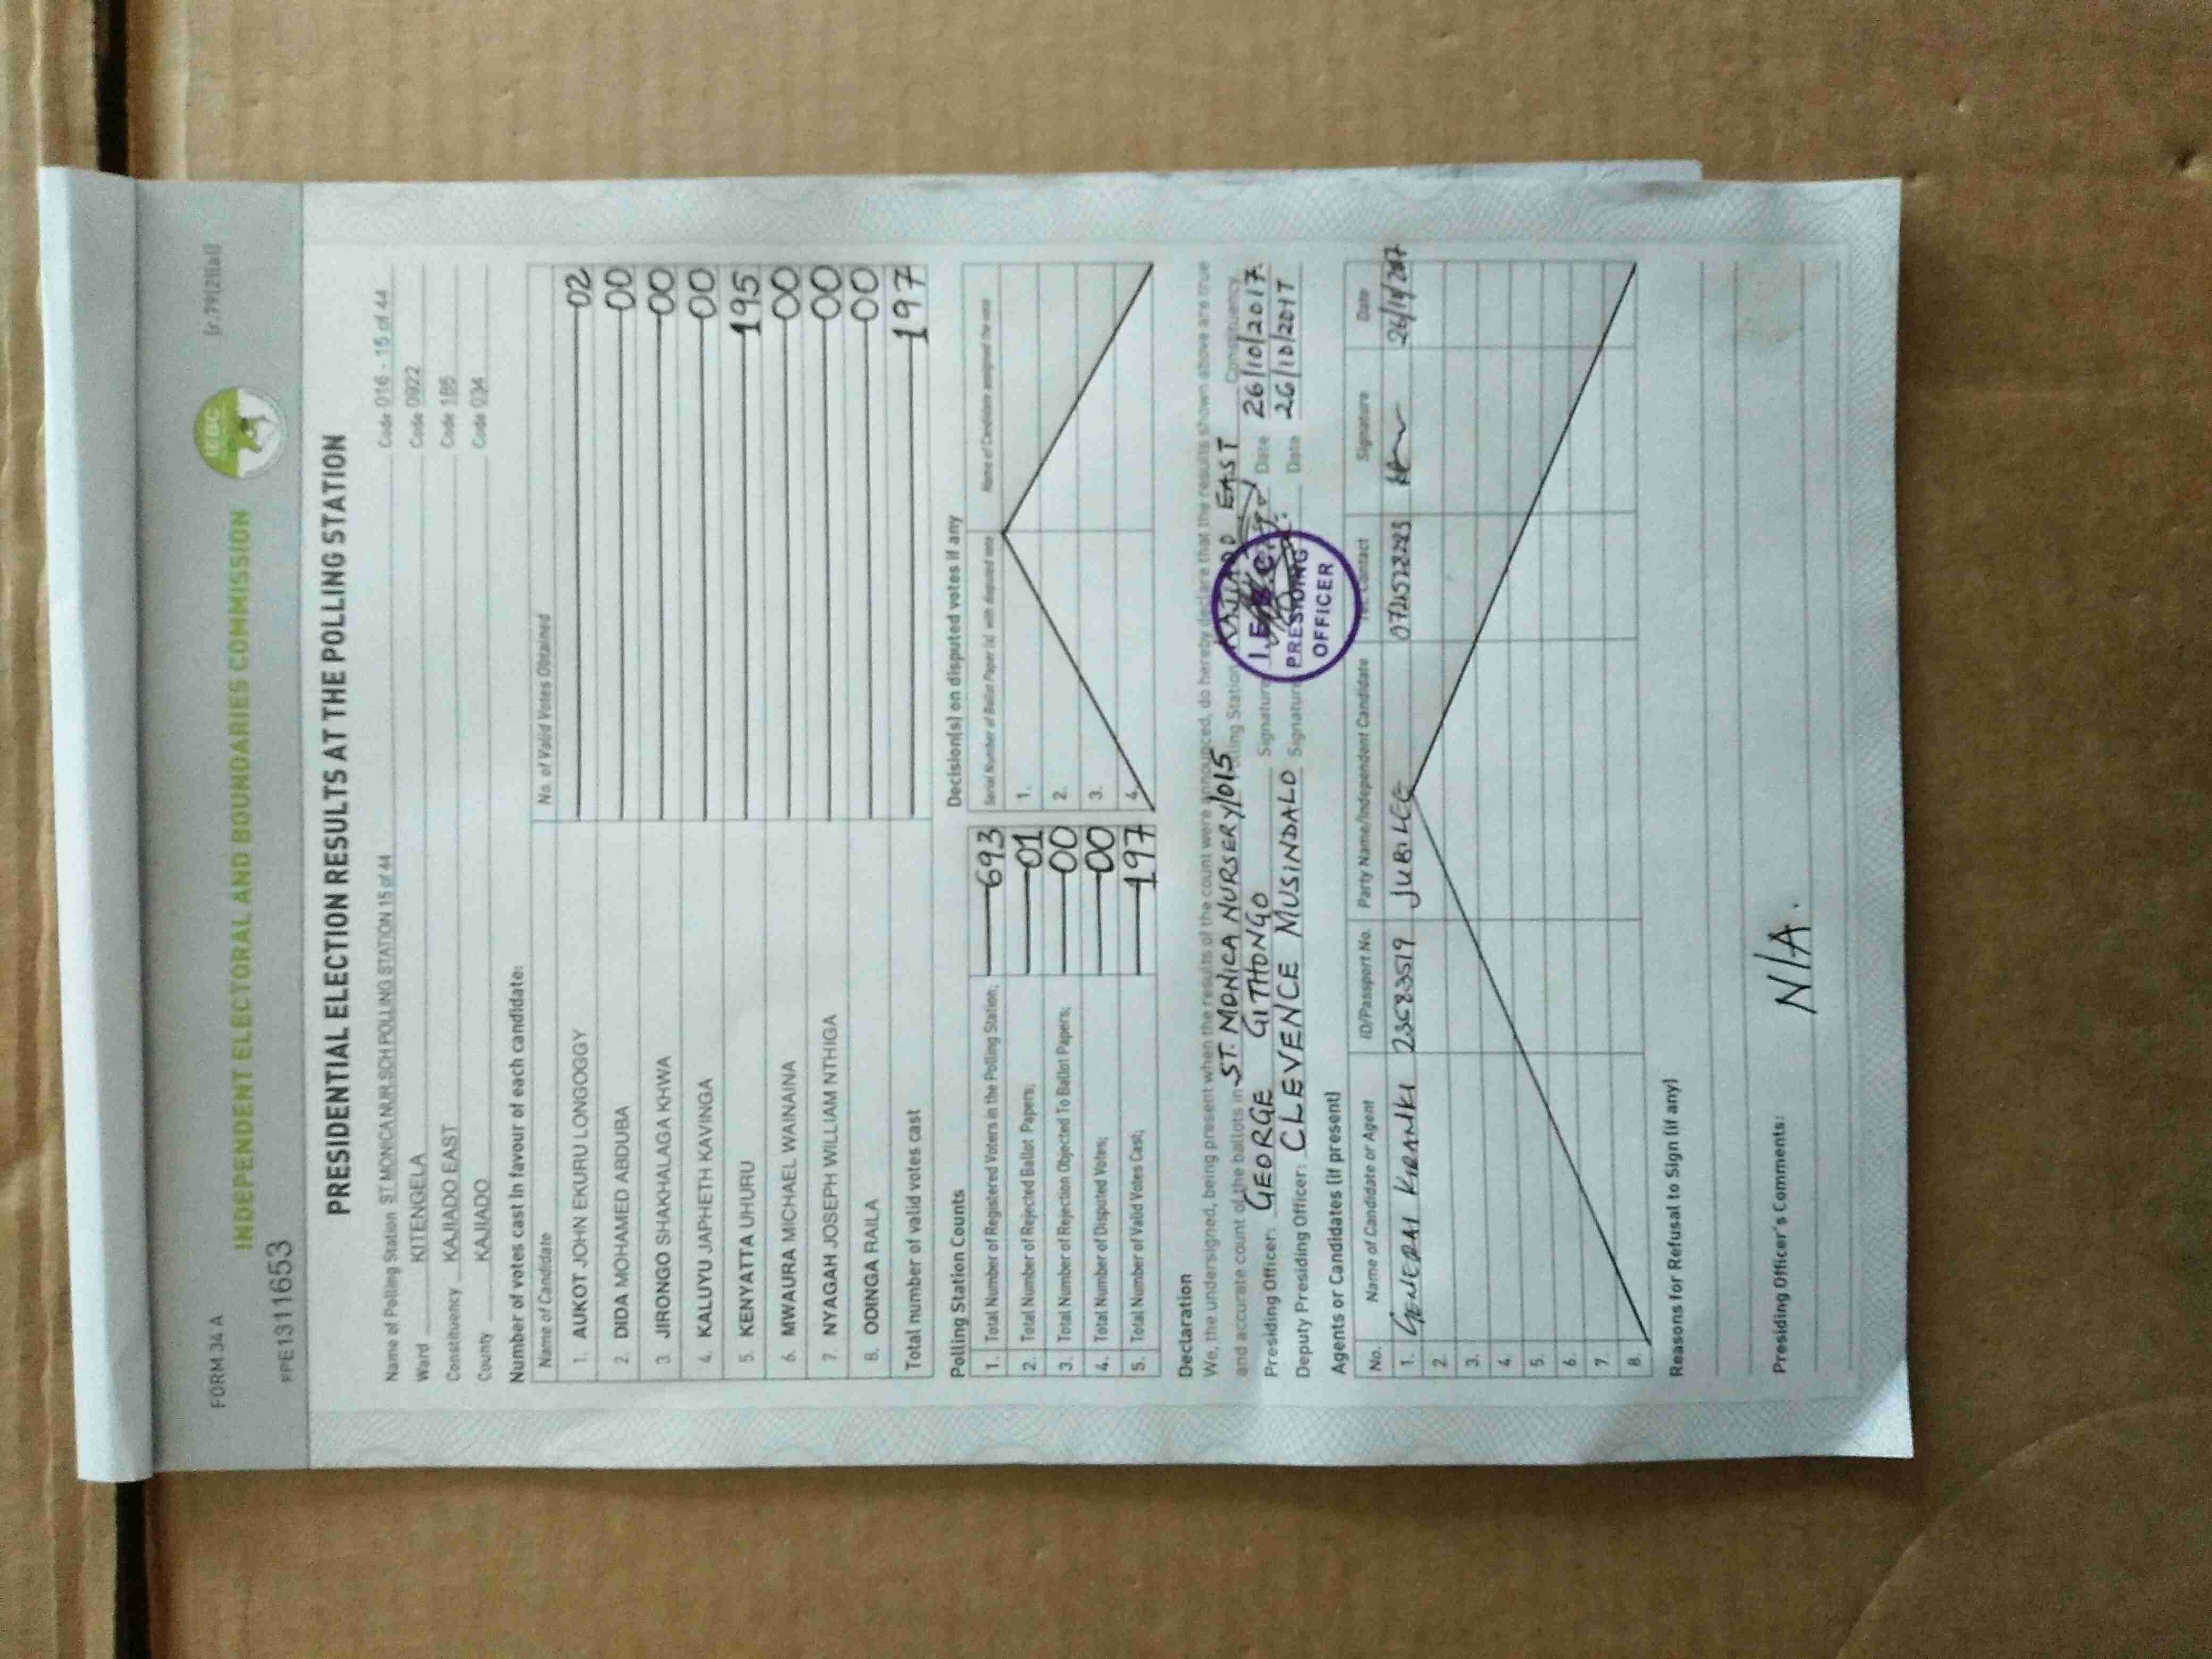 FORM 34 A
INDEPENDENT ELECTORAL AND BOUNDARIES COMMISSION
IEBC
PRESIDENTIAL ELECTION RESULTS AT THE POLLING STATION
Name of Polling Station ST MONICA NUR.SCH POLLING STATION 15 of 44 Code 016 - 15 of 44
Ward KITENGELA Code 0922
Constituency KAJIADO EAST Code 185
County KAJIADO Code 034
Number of votes cast in favour of each candidate:
Name of Candidate No. of Valid Votes Obtained
1. AUKOT JOHN EKURU LONGOGGY 02
2. DIDA MOHAMED ABDUBA 00
3. JIRONGO SHAKHALAGA KHWA 00
4. KALUYU JAPHETH KAVINGA 00
5. KENYATTA UHURU 195
6. MWAURA MICHAEL WAINAINA 00
7. NYAGAH JOSEPH WILLIAM NTHIGA 00
8. ODINGA RAILA 00
Total number of valid votes cast 197
Polling Station Counts
1. Total Number of Registered Voters in the Polling Station; 693
2. Total Number of Rejected Ballot Papers; 01
3. Total Number of Rejection Objected To Ballot Papers; 00
4. Total Number of Disputed Votes; 00
5. Total Number of Valid Votes Cast; 197
Decision(s) on disputed votes if any
Serial Number of Ballot Paper (s) with disputed vote Name of Candidate assigned the vote
1.
2.
3.
4.
Declaration
We, the undersigned, being present when the results of the count were announced, do hereby declare that the results shown above are true
and accurate count of the ballots in ST. MONICA NURSERY/015 Polling Station EAST Constituency.
Presiding Officer: GEORGE GITHONGO Signature Date 26/10/2017
Deputy Presiding Officer: CLEVENCE MUSINDALO Signature Date 26/10/2017
PRESIDING
OFFICER
Agents or Candidates (if present)
No. Name of Candidate or Agent ID/Passport No. Party Name/Independent Candidate Contact Signature Date
1. GENERAL KIRANKI 23683519 JUBILEE
2.
3.
4.
5.
6.
7.
8.
Reasons for Refusal to Sign (if any)
Presiding Officer's Comments:
N/A.